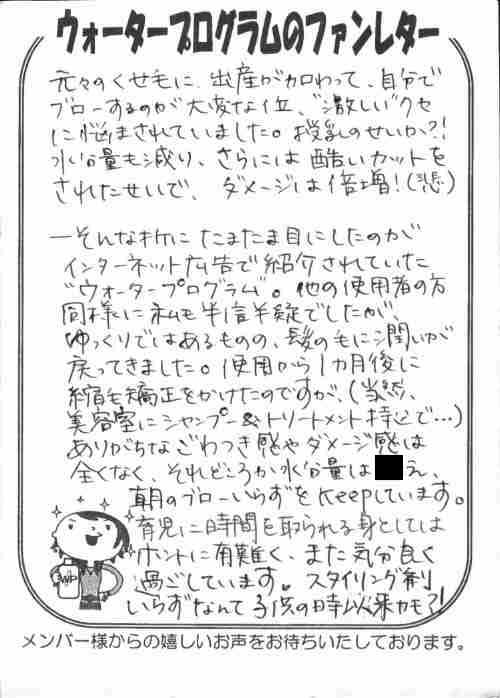 ウォータープログラムのファンレター
元々のくせ毛に、出産が加わって、自分で
ブローするのが大変な位、"激しい"クセ
に悩まされていました。授乳のせいか?!
水分量も減り、さらには酷いカットを
されたせいで、ダメージは倍増!(悲)
ーそんな折に たまたま目にしたのが
インターネット広告で紹介されていた
"ウォータープログラム"。他の使用者の方
同様に私も半信半疑でしたが、
ゆっくりではあるものの、髪の毛に潤いが
戻ってきました。使用から1カ月後に
縮毛矯正をかけたのですが、(当然、
美容室にシャンプー&トリートメント持込で…)
ありがちなごわつき感やダメージ感は
全くなく、それどころか水分量は え、
朝のブローいらずをkeepしています。
育児に時間を取られる身としては
ホントに有難く、また気分良く
過ごしています。スタイリング剤
いらずなんて子供の時以来カモ?!
WP
メンバー様からの嬉しいお声をお待ちいたしております。